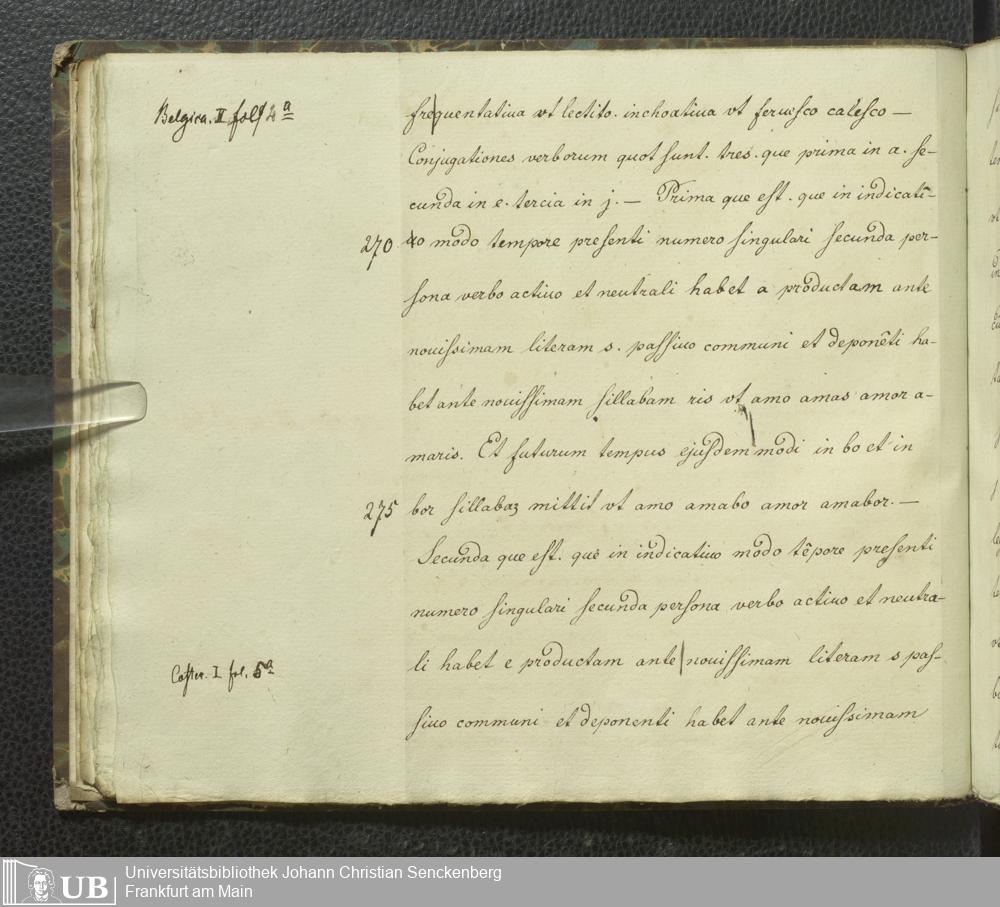 Belgica. II fol 2ª
fre|quentatiua vt lectito. inchoatiua vt feruesco calesco —
Conjugationes verborum quot sunt. tres. que prima in a. se-
cunda in e. tercia in j. — Prima que est. que in indicati-
270 uo modo tempore presenti numero singulari secunda per-
sona verbo actiuo et neutrali habet a productam ante
nouissimam literam s. passiuo communi et deponēti ha-
bet ante nouissimam sillabam ris vt amo amas amor a-
maris. Et futurum tempus ejusdem modi in bo et in
275 bor sillabaʒ mittit vt amo amabo amor amabor. —
Secunda que est. que in indicatiuo modo tēpore presenti
numero singulari secunda persona verbo actiuo et neutra-
Coster. I fol. 5ª
li habet e productam ante | nouissimam literam s pas-
siuo communi et deponenti habet ante nouissimam
UB Universitätsbibliothek Johann Christian Senckenberg
Frankfurt am Main